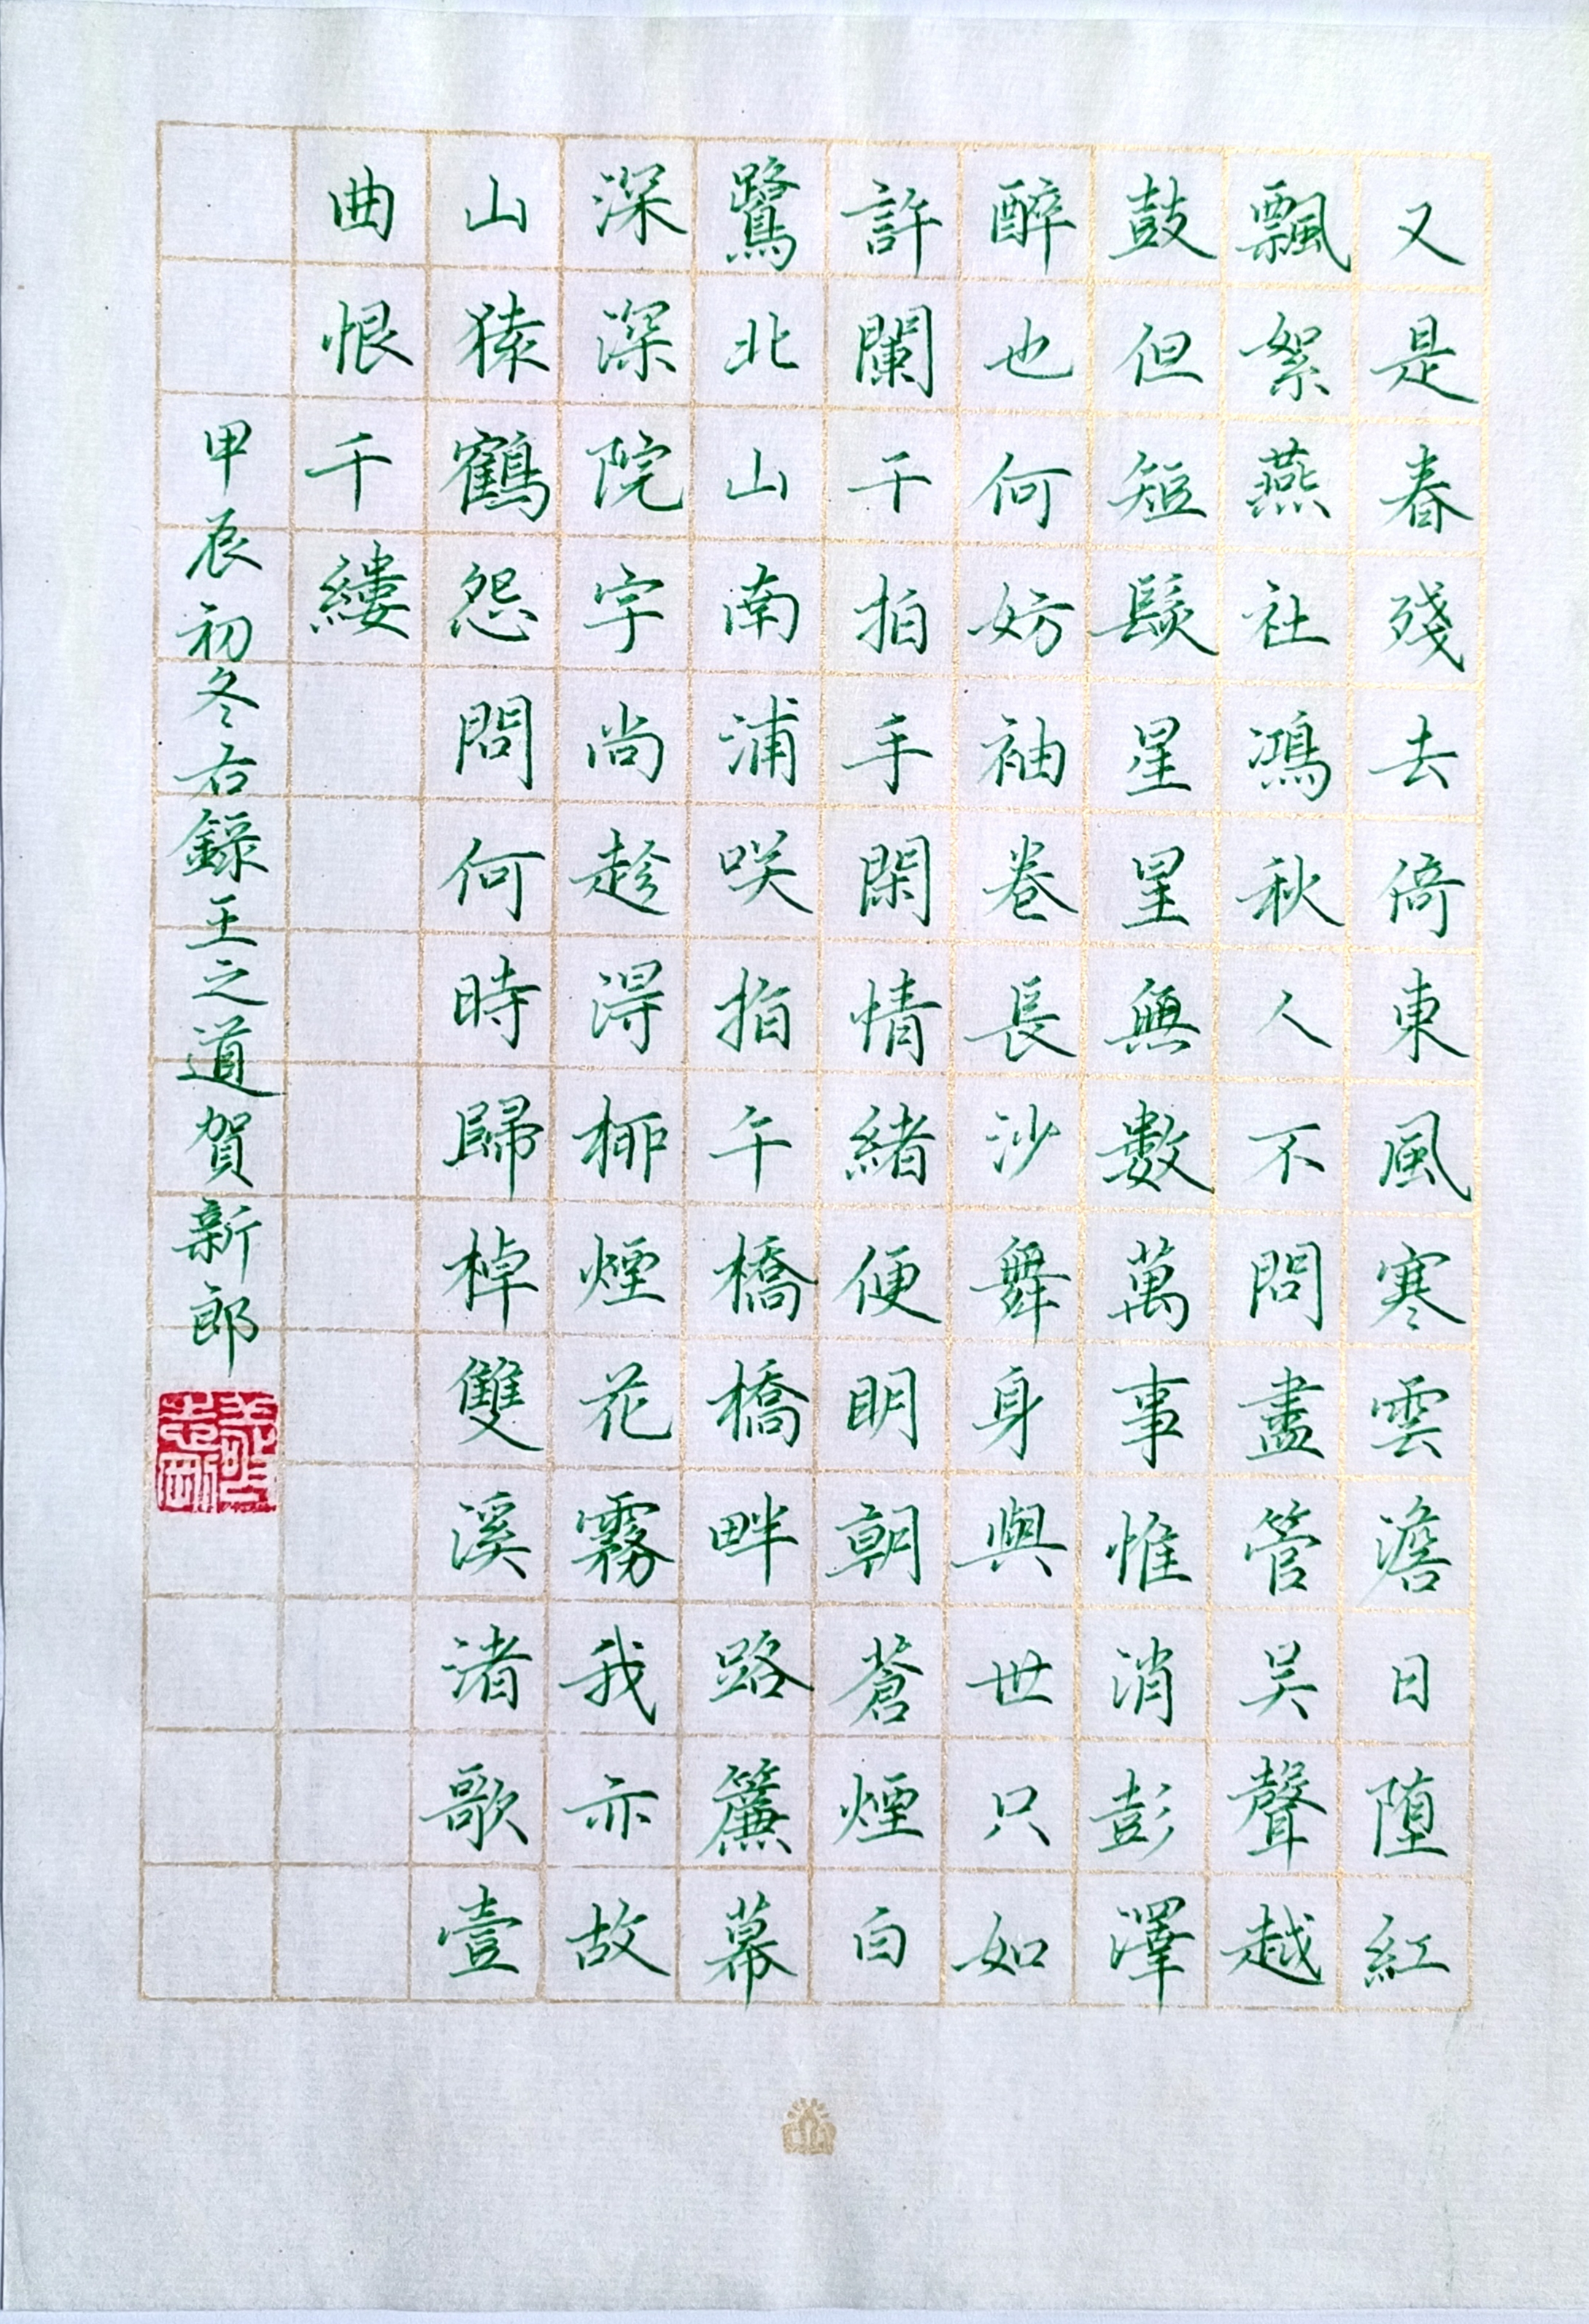 又是春殘去倚東風寒雲澹日堕紅
飄絮燕社鴻秋人不問盡管吴聲越
鼓但短髮星星無數萬事惟消彭澤
醉也何妨袖卷長沙舞身與世只如
許闌干拍手閑情緒便明朝蒼煙白
鷺北山南浦咲指午橋橋畔路簾幕
深深院宇尚趁得栁煙花霧我亦故
山猿鶴怨問何時歸棹雙溪渚歌壹
曲恨千縷
甲辰初冬右錄王之道賀新郎